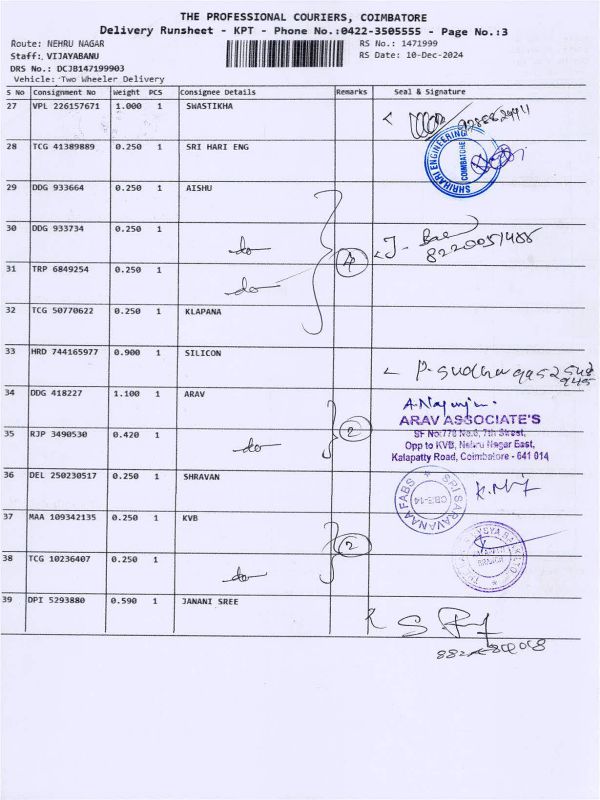 THE PROFESSIONAL COURIERS, COIMBATORE
Delivery Runsheet - KPT - Phone No.:0422-3505555 - Page No.:3
Route: NEHRU NAGAR
RS No.: 1471999
Staff:. VIJAYABANU
RS Date: 10-Dec-2024
DRS No.: DCJB147199903
Vehicle: Two Wheeler Delivery
S No Consignment No Weight PCS Consignee Details Remarks Seal & Signature
27 VPL 226157671 1.000 1 SWASTIKHA
28 TCG 41389889 0.250 1 SRI HARI ENG
SHRIHARI ENGINEERING COIMBATORE
29 DDG 933664 0.250 1 AISHU
30 DDG 933734 0.250 1 do
4
8220051488
31 TRP 6849254 0.250 1 do
32 TCG 50770622 0.250 1 KLAPANA
33 HRD 744165977 0.900 1 SILICON
34 DDG 418227 1.100 1 ARAV
2
ARAV ASSOCIATE'S
SF No:778 No.6, 7th Street,
Opp to KVB, Nehru Nagar East,
Kalapatty Road, Coimbatore - 641 014
35 RJP 3490530 0.420 1 do
36 DEL 250230517 0.250 1 SHRAVAN
SRI SARAVANAA FABS CBE-14
37 MAA 109342135 0.250 1 KVB
2
38 TCG 10236407 0.250 1 do
39 DPI 5293880 0.590 1 JANANI SREE